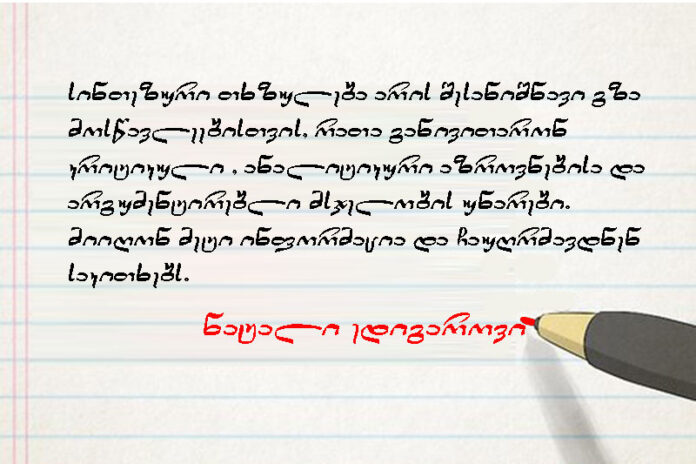 სინთეზური თხზულება არის შესანიშნავი გზა
მოსწავლეებისთვის, რათა განივითარონ
კრიტიკული , ანალიტიკური აზროვნებისა და
არგუმენტირებული მსჯელობის უნარები.
მიიღონ მეტი ინფორმაცია და ჩაუღრმავდნენ
საკითხებს.
ნატალი ედიგაროვი